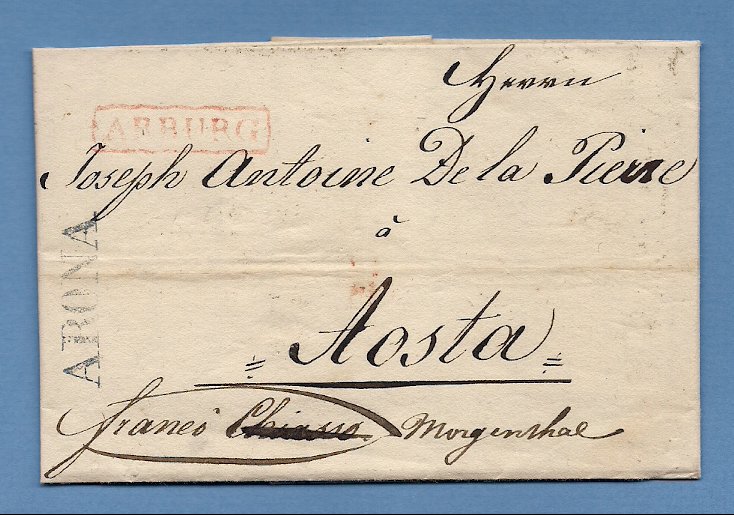 Herrn
ARBURG
Joseph Antoine De la Pierre
à
Aosta
ARONA
franco Chiasso Morgenthal